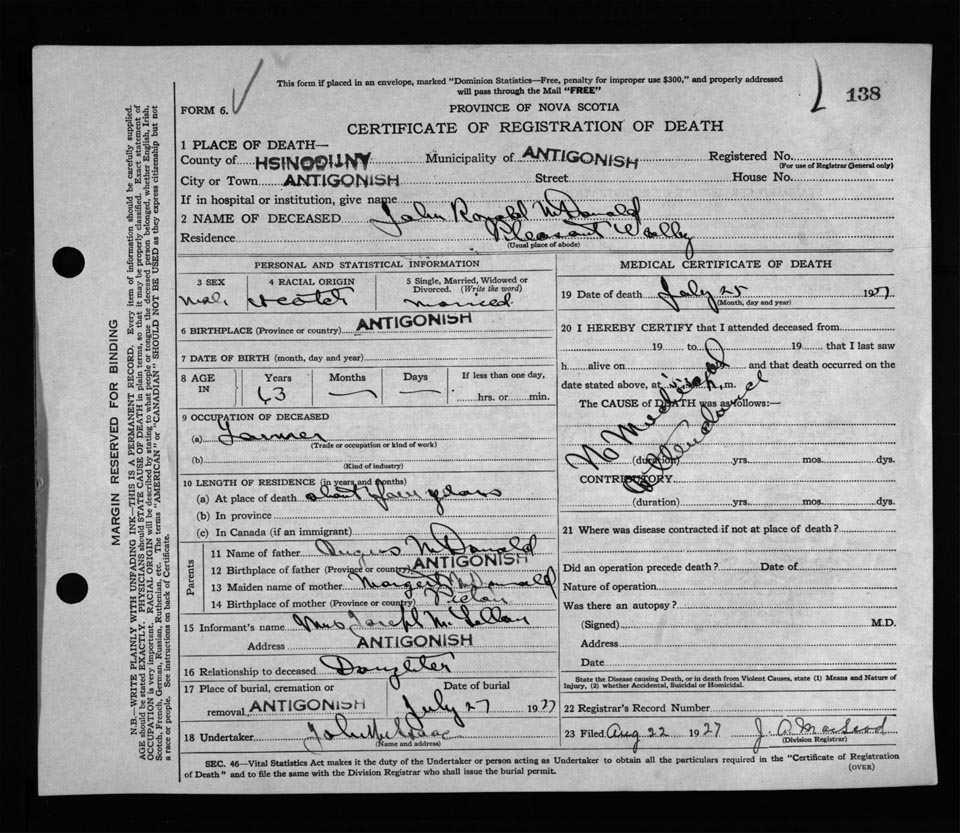 This form if placed in an envelope, marked "Dominion Statistics—Free, penalty for improper use $300," and properly addressed
will pass through the Mail "FREE"
138
FORM 6.
PROVINCE OF NOVA SCOTIA
CERTIFICATE OF REGISTRATION OF DEATH
1 PLACE OF DEATH—
County of ANTIGONISH Municipality of ANTIGONISH Registered No.
(For use of Registrar General only)
City or Town ANTIGONISH Street House No.
If in hospital or institution, give name
2 NAME OF DECEASED John Ronald McDonald
Residence Pleasant Vally
(Usual place of abode)
PERSONAL AND STATISTICAL INFORMATION
3 SEX 4 RACIAL ORIGIN 5 Single, Married, Widowed or
Divorced. (Write the word)
Male married
6 BIRTHPLACE (Province or country) ANTIGONISH
7 DATE OF BIRTH (month, day and year)
8 AGE IN Years Months Days If less than one day,
63 — — hrs. or min.
9 OCCUPATION OF DECEASED
(a) Farmer
(Trade or occupation or kind of work)
(b)
(Kind of industry)
10 LENGTH OF RESIDENCE (in years and months)
(a) At place of death about years
(b) In province
(c) In Canada (if an immigrant)
Parents
11 Name of father Angus McDonald
12 Birthplace of father (Province or country) ANTIGONISH
13 Maiden name of mother Margert McDonald
14 Birthplace of mother (Province or country) Pictou
15 Informant's name Mrs Joseph McLellan
Address ANTIGONISH
16 Relationship to deceased Daughter
17 Place of burial, cremation or Date of burial
removal ANTIGONISH July 27 1927
18 Undertaker John McIsaac
(Name and address)
MEDICAL CERTIFICATE OF DEATH
19 Date of death July 25 1927
(Month, day and year)
20 I HEREBY CERTIFY that I attended deceased from
19 to 19 that I last saw
h alive on and that death occurred on the
date stated above, at m.
The CAUSE of DEATH was as follows:—
No Medical
Attendance
(duration) yrs. mos. dys.
CONTRIBUTORY
(duration) yrs. mos. dys.
21 Where was disease contracted if not at place of death?
Did an operation precede death? Date of
Nature of operation
Was there an autopsy?
(Signed) M.D.
Address
Date
State the Disease causing Death, or in death from Violent Causes, state (1) Means and Nature of
Injury, (2) whether Accidental, Suicidal or Homicidal.
22 Registrar's Record Number
23 Filed Aug 22 1927 J. A. MacLeod
(Division Registrar)
SEC. 46—Vital Statistics Act makes it the duty of the Undertaker or person acting as Undertaker to obtain all the particulars required in the "Certificate of Registration
of Death" and to file the same with the Division Registrar who shall issue the burial permit.
(OVER)
MARGIN RESERVED FOR BINDING
N.B.—WRITE PLAINLY WITH UNFADING INK—THIS IS A PERMANENT RECORD. Every item of information should be carefully supplied.
AGE should be stated EXACTLY. PHYSICIANS should STATE CAUSE OF DEATH in plain terms, so that it may be properly classified. Exact statement of
OCCUPATION is very important. RACIAL ORIGIN will be described by stating to what people or tongue the deceased person belonged, whether English, Irish,
Scotch, French, German, Russian, Ruthenian, etc. The terms "AMERICAN" or "CANADIAN" SHOULD NOT BE USED as they express citizenship but not
a race or people. See instructions on back of Certificate.